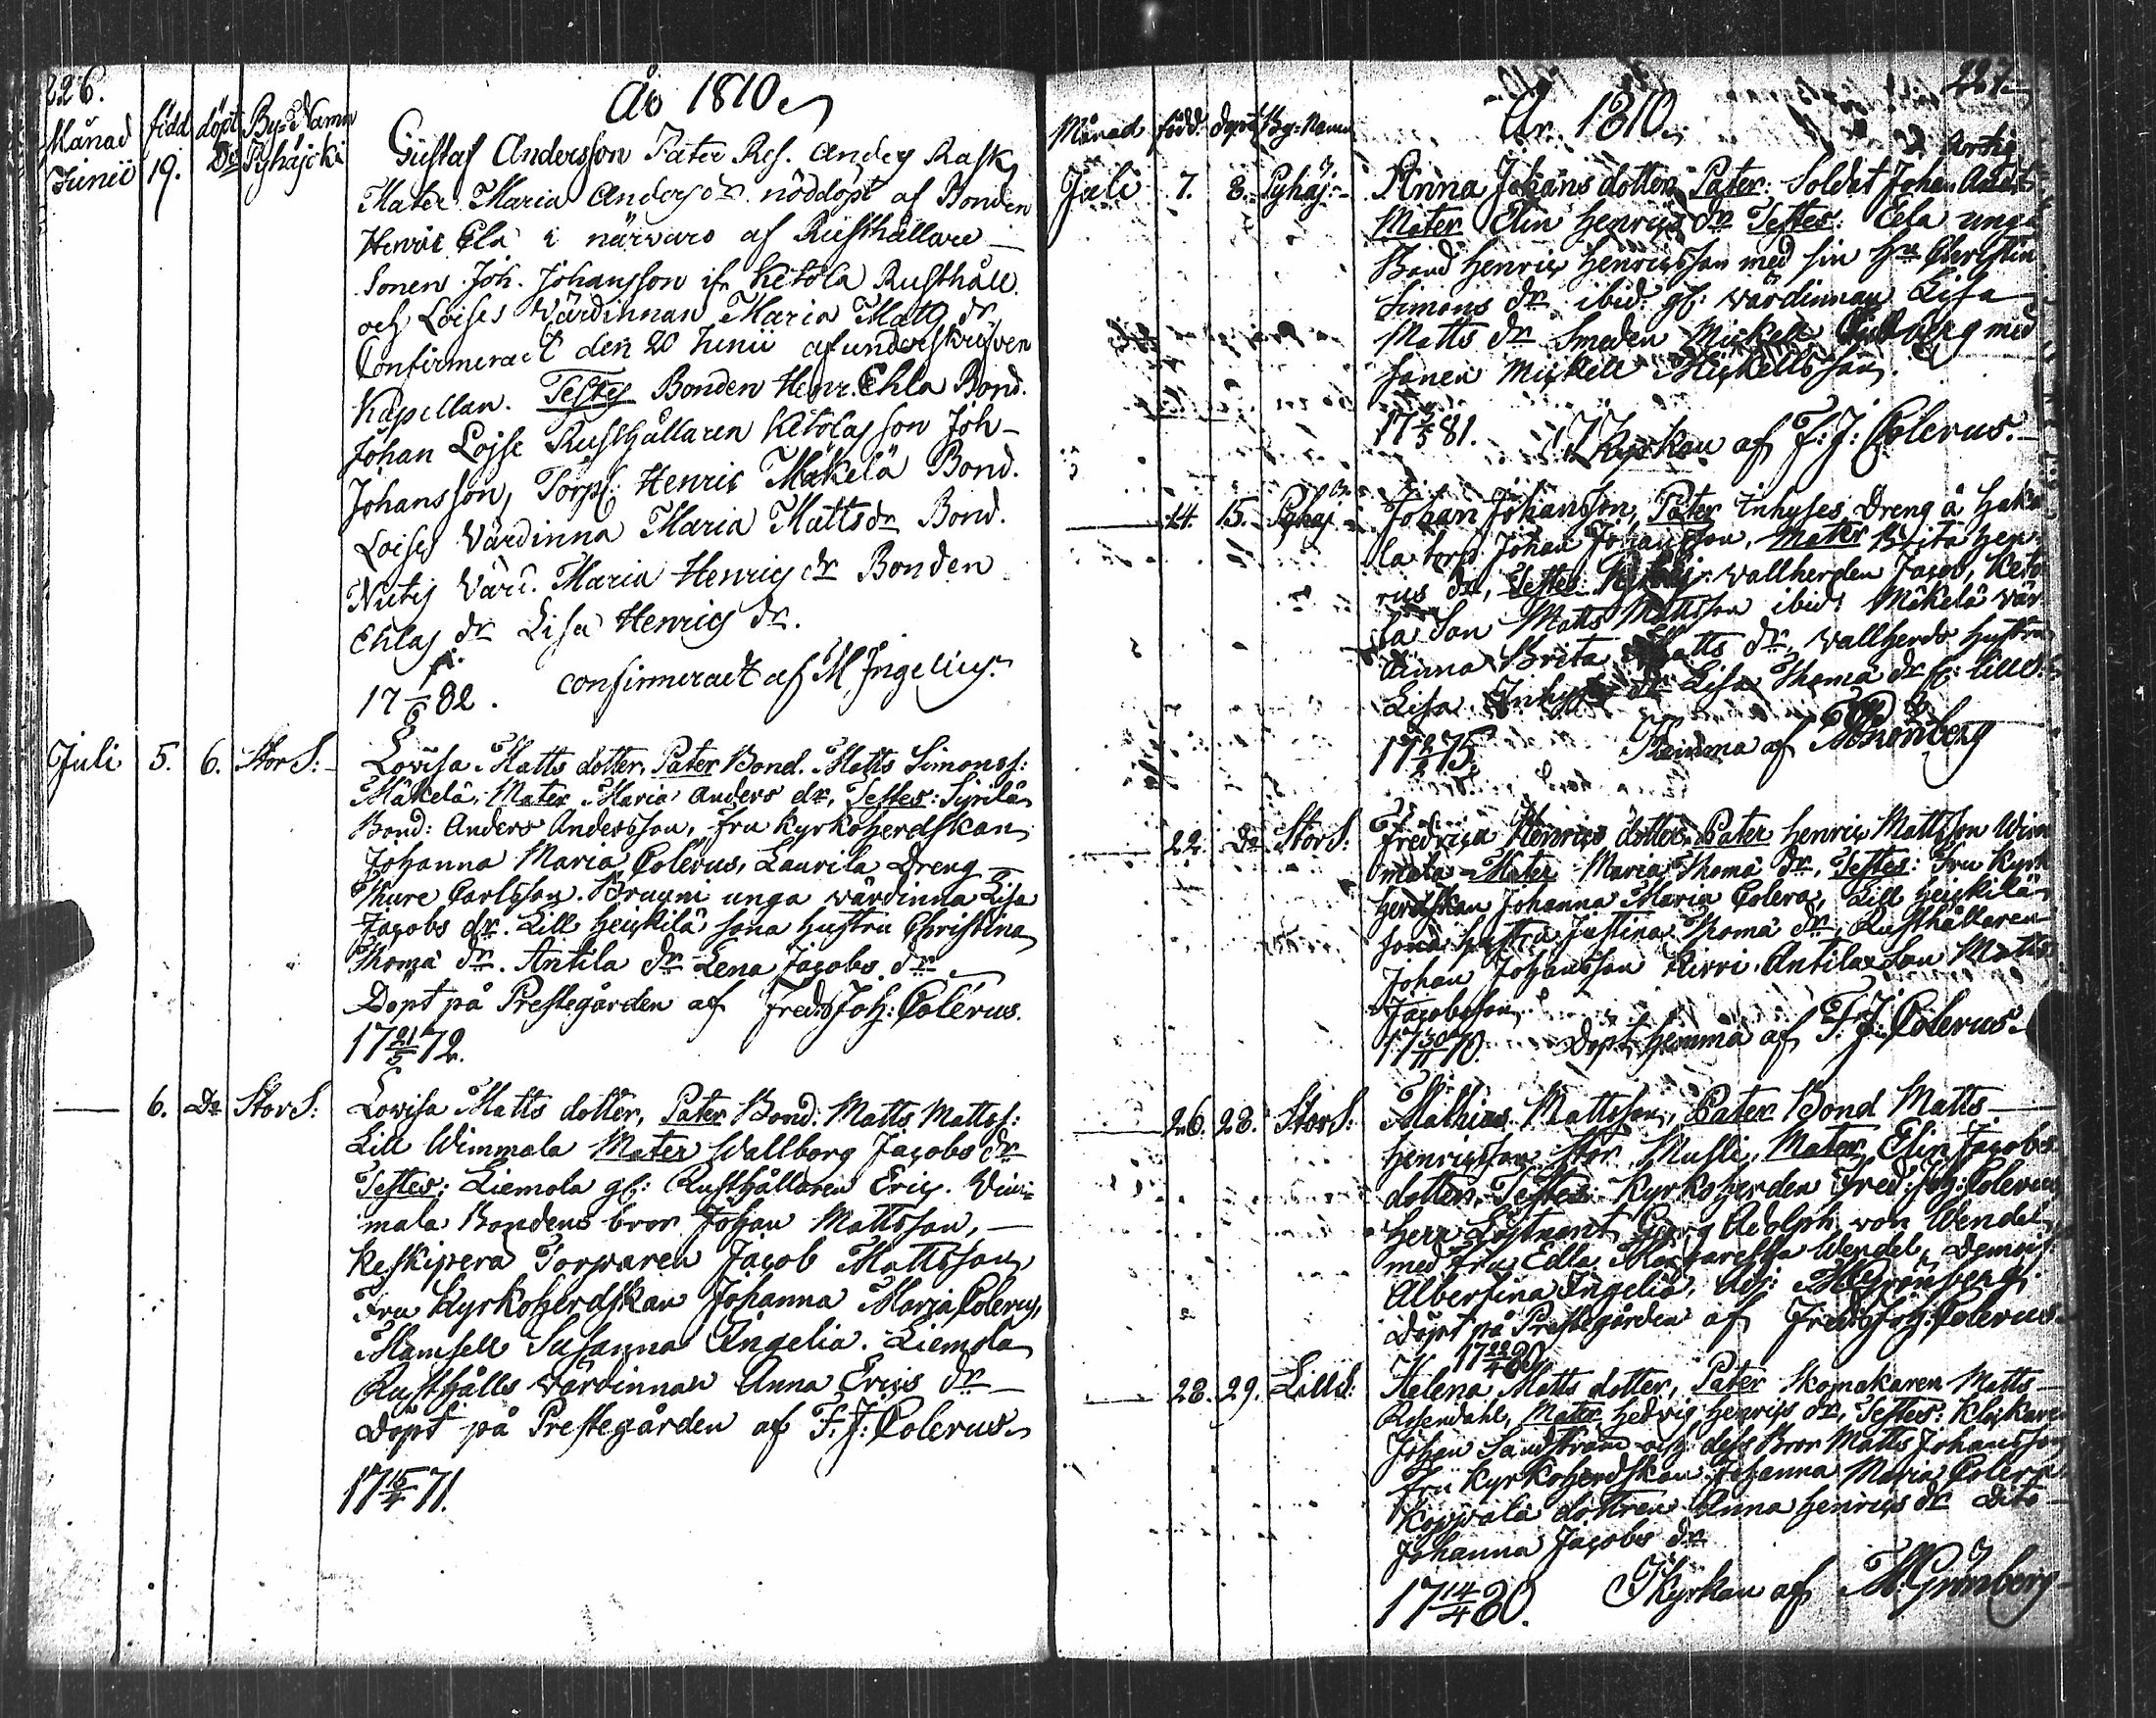 226.
År 1810
Månad född döpt By=Namn
Junii 19. Do Pyhäjoki
Gustaf Andersson Pater Res. Anders Rask
Mater Maria Anders dr nöddöpt af Bonden
Henric Ela i närvaro af Rusthållare
Sonen Joh. Johansson ifr. Ketola Rusthåll
och Loises Värdinnan Maria Matts dr
Confirmeradt den 20 Junii af underskrifven
Kapellan. Testes Bonden Henr. Ehla Bond.
Johan Lojse Rusthållaren Ketolas son Joh
Johansson, Torp: Henric Mäkelä Bond.
Loises Värdinna Maria Matts dr Bond.
Nutis Värd. Maria Henrics dr Bonden
Ehlas dr Lisa Henrics dr.
17 1/6 82. confirmeradt af M Ingelius
Juli 5. 6. Stor S:
Lovisa Matts dotter, Pater Bond. Matts Simonss:
Mäkelä, Mater Maria Anders dr, Testes: Syrilä
Bond: Anders Andersson, fru Kyrkoherdskan
Johanna Maria Polerus, Laurila Dreng
Thure Carlsson. Bruuni unga wärdinna Lisa
Jacobs dr. Lill Heickilä sona hustru Christina
Thoma dr. Antila dr Lena Jacobs dr
Döpt på Prestegården af Fred: Joh: Polerus.
17 21/5 72.
6. Do Stor S:
Lovisa Matts dotter, Pater Bond. Matts Mattss:
Lill Wimmala Mater Wallborg Jacobs dr
Testes: Liemola gl: Rusthållaren Eric. Wim=
mala Bondens bror Johan Mattsson,
Keskipera Torparen Jacob Mattsson
Fru Kyrkoherdskan Johanna Maria Polerus,
Mamsell Susanna Ingelia. Liemola
Rusthålls wärdinnan Anna Erics dr
Döpt på Prestegården af F. J: Polerus
17 15/4 71.
227
År 1810.
Månad född. döpt By=Namn
Juli 7. 8. Pyhäj:
Anna Johans dotter Pater: Soldat Johan
Mater Elin Henrics dr Testes: Eela unga
Bond Henric Henricsson med sin Hu Christin
Simons dr ibid: gl: wärdinnan Lisa
Matts dr Smeden Mickell med
sonen Mickell Mickellsson.
17 2/5 81. I Kyrkan af F: J: Polerus.
14. 15. Pyhäj
Johan Johansson, Pater Inhyses Dreng å Haka
la torp Johan Johansson, Mater Brita Hen
rics dr, Testes: wallherden Jacob, Keto
la Son Matts Mattsson ibid: Mäkelä vär
dinna Brita Matts dr, wallherds hustru
Lisa. Inhyses dr Lisa Thoma dr
Hemma af M Grönberg
22. Do Stor S:
Fredrica Henrics dotter, Pater Henric Mattsson Wim
mala Mater Maria Thoma dr, Testes: Fru Kyrk
herdskan Johanna Maria Polera, Lill Heickilä
sona hustru Justina Thoma dr, Rusthållaren
Johan Johansson Antila Son Matts
Jacobsson
17 30/11 70 Döpt hemma af F. J: Polerus
26. 28. Stor S:
Mathias Mattsson, Pater Bond Matts
Henricsson Stor Musli, Mater Elin Jacobs
dotter, Testes: Kyrkoherden Fred: Joh: Polerus
Herr Löjtnant Georg Adolph von Wendel
med fru Edla Margaretha Wendel, Demois
Albertina Ingelia, Adj: M Grönberg
Döpt på Prestegården af Fred: Joh: Polerus
17 22/4 80
28. 29. Lill S:
Helena Matts dotter, Pater Skomakaren Matts
Rosendahl, Mater Hedvig Henrics dr, Testes: Klockaren
Johan Sandström och dess Bror Matts Johansson
Fru Kyrkoherdskan Johanna Maria Polera
dottren Anna Henrics dr Dito
Johanna Jacobs dr
17 14/4 80. I Kyrkan af M Grönberg